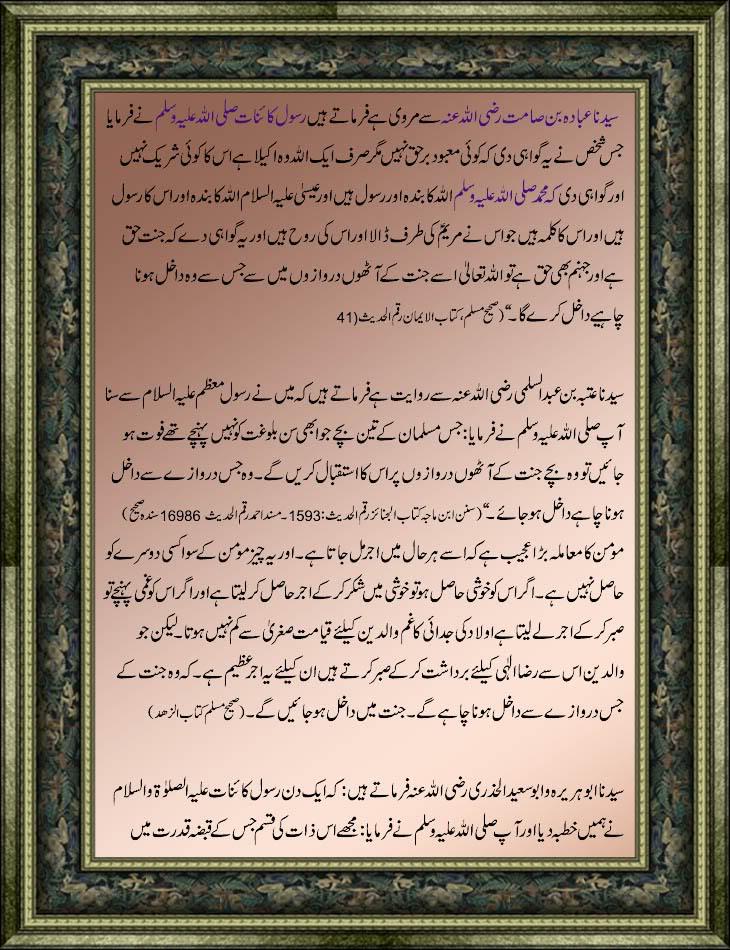 سیدنا عبادہ بن صامت رضی اللہ عنہ سے مروی ہے فرماتے ہیں رسول کائنات صلی اللہ علیہ وسلم نے فرمایا
جس شخص نے یہ گواہی دی کہ کوئی معبود برحق نہیں مگر صرف ایک اللہ وہ اکیلا ہے اس کا کوئی شریک نہیں
اور گواہی دی کہ محمد صلی اللہ علیہ وسلم اللہ کا بندہ اور رسول ہیں اور عیسیٰ علیہ السلام اللہ کا بندہ اور اس کا رسول
ہیں اور اس کا کلمہ ہیں جو اس نے مریمؑ کی طرف ڈالا اور اس کی روح ہیں اور یہ گواہی دے کہ جنت حق
ہے اور جہنم بھی حق ہے تو اللہ تعالیٰ اسے جنت کے آٹھوں دروازوں میں سے جس سے وہ داخل ہونا
چاہیے داخل کرے گا۔“ (صحیح مسلم، کتاب الایمان رقم الحدیث (41
سیدنا عتبہ بن عبدالسلمی رضی اللہ عنہ سے روایت ہے فرماتے ہیں کہ میں نے رسول معظم علیہ السلام سے سنا
آپ صلی اللہ علیہ وسلم نے فرمایا: جس مسلمان کے تین بچے جو ابھی سن بلوغت کو نہیں پہنچے تھے فوت ہو
جائیں تو وہ بچے جنت کے آٹھوں دروازوں پر اس کا استقبال کریں گے۔ وہ جس دروازے سے داخل
ہونا چاہے داخل ہو جائے۔“ (سنن ابن ماجہ کتاب الجنائز رقم الحدیث: 1593۔ مسند احمد رقم الحدیث 16986 سندہ صحیح)
مؤمن کا معاملہ بڑا عجیب ہے کہ اسے ہر حال میں اجر مل جاتا ہے۔ اور یہ چیز مؤمن کے سوا کسی دوسرے کو
حاصل نہیں ہے۔ اگر اس کو خوشی حاصل ہو تو خوشی میں شکر کر کے اجر حاصل کر لیتا ہے اور اگر اس کو غمی پہنچے تو
صبر کر کے اجر لے لیتا ہے اولاد کی جدائی کا غم والدین کیلئے قیامت صغریٰ سے کم نہیں ہوتا۔ لیکن جو
والدین اس سے رضا الٰہی کیلئے برداشت کر کے صبر کرتے ہیں ان کیلئے یہ اجر عظیم ہے۔ کہ وہ جنت کے
جس دروازے سے داخل ہونا چاہے گے۔ جنت میں داخل ہو جائیں گے۔ (صحیح مسلم کتاب الزھد)
سیدنا ابو ہریرہ و ابو سعید الخدری رضی اللہ عنہ فرماتے ہیں: کہ ایک دن رسول کائنات علیہ الصلوٰۃ والسلام
نے ہمیں خطبہ دیا اور آپ صلی اللہ علیہ وسلم نے فرمایا: مجھے اس ذات کی قسم جس کے قبضہ قدرت میں